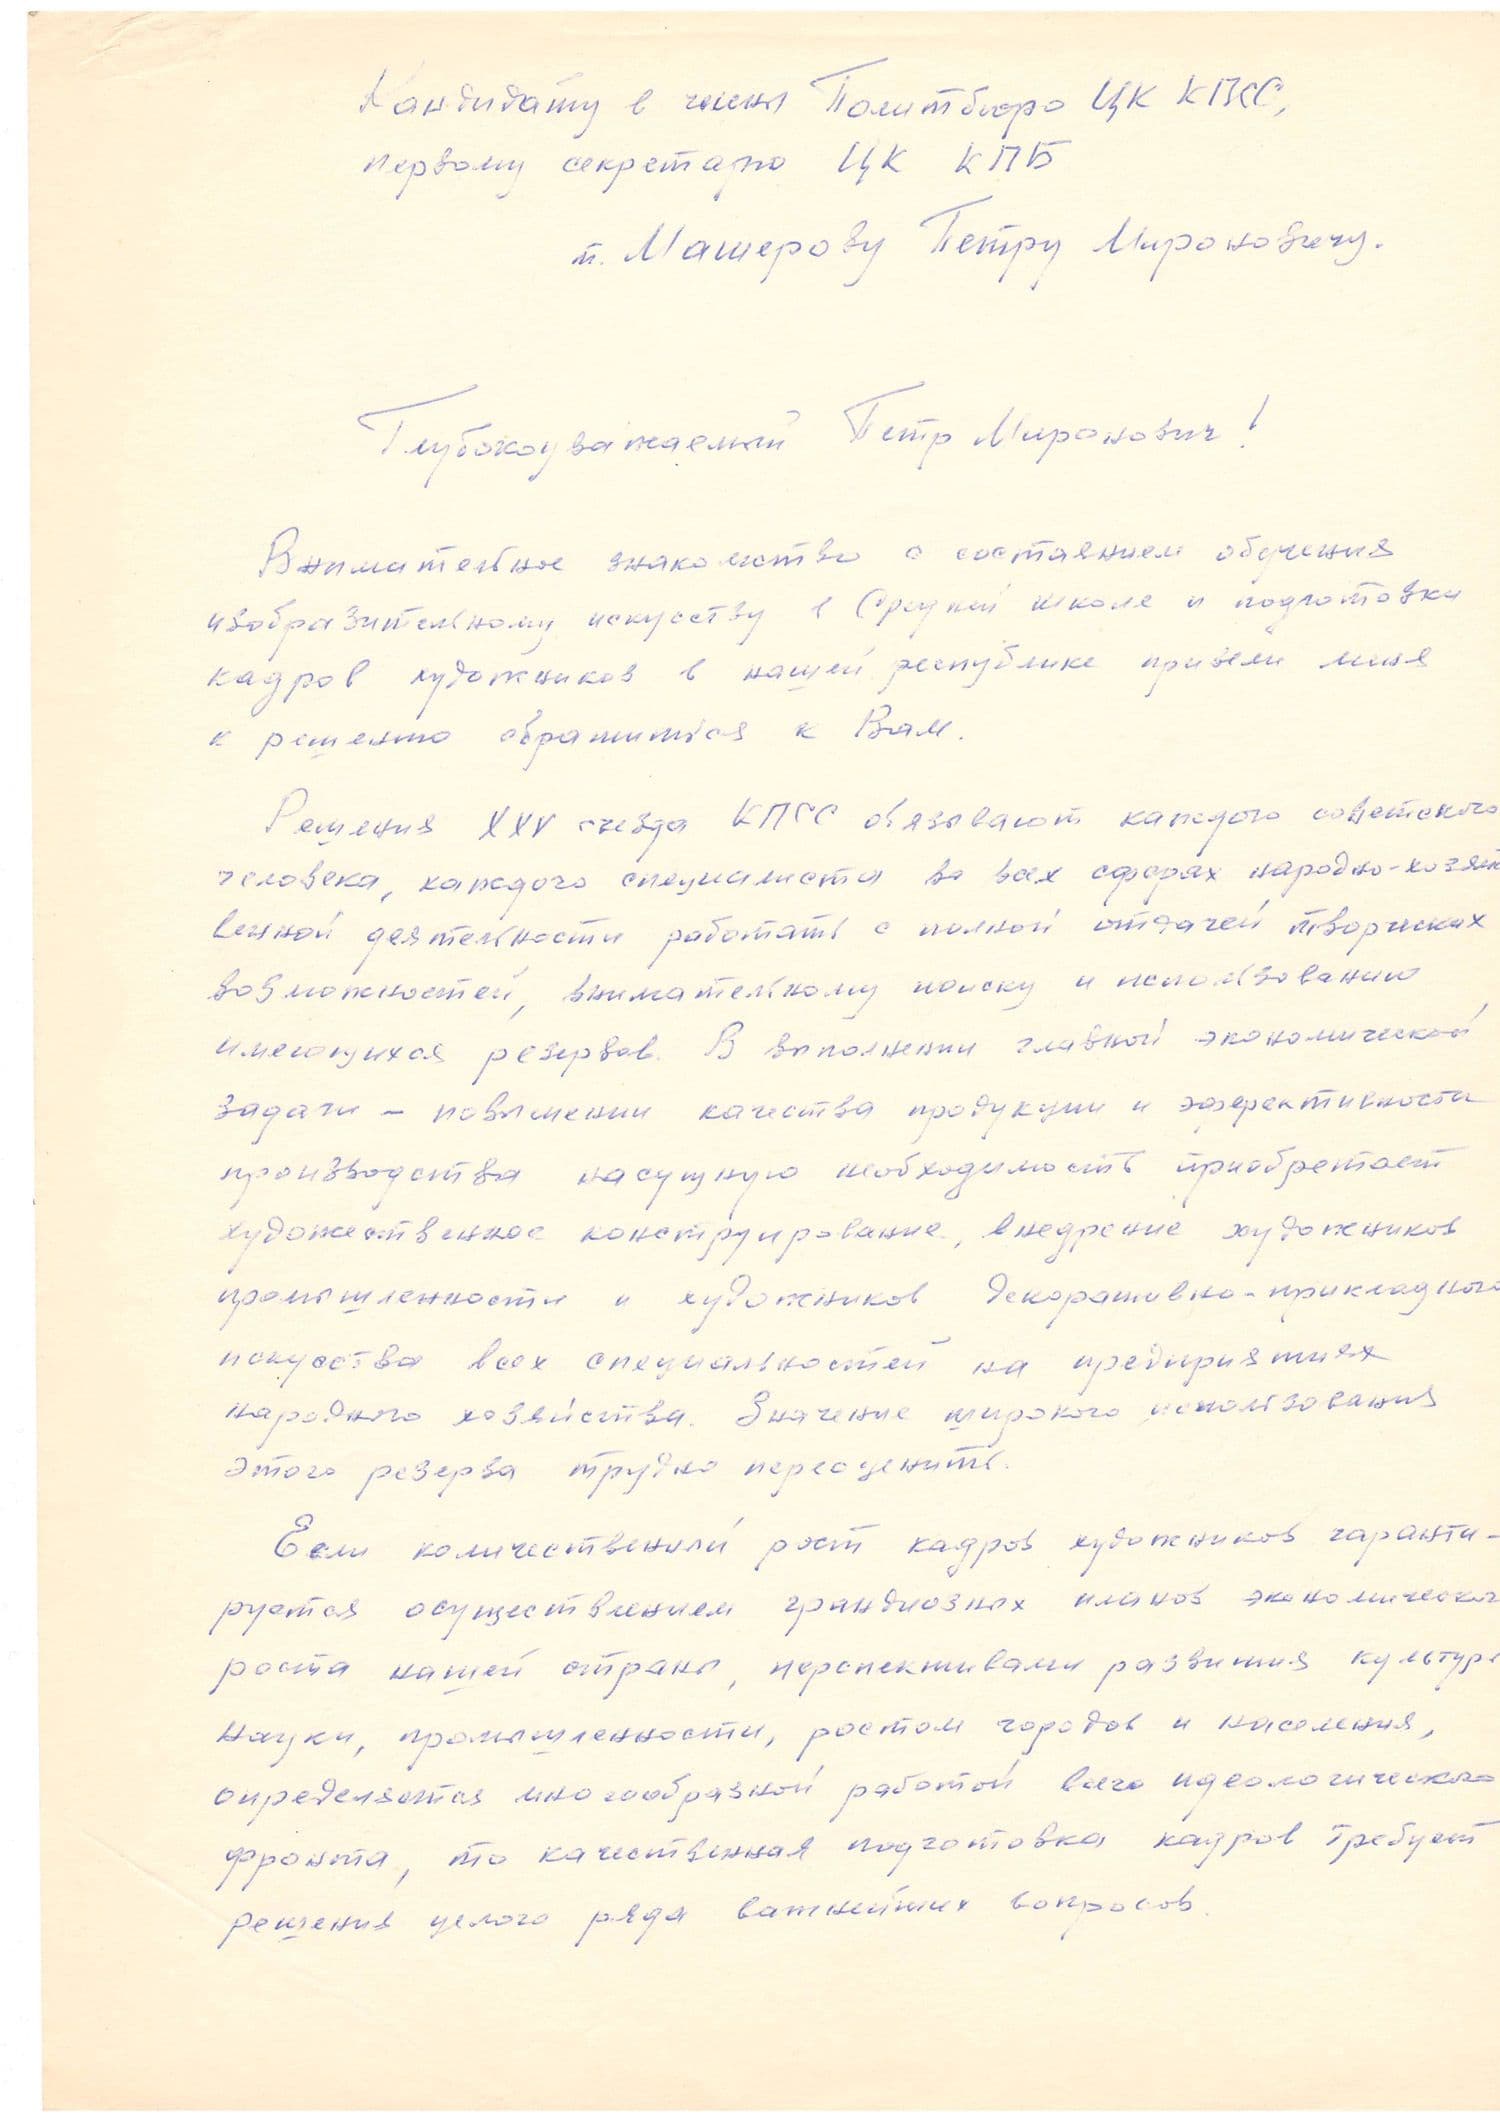 Кандидату в члены Политбюро ЦК КПСС,
первому секретарю ЦК КПБ
т. Машерову Петру Мироновичу.
Глубокоуважаемый Петр Миронович!
Внимательное знакомство с состоянием обучения
изобразительному искусству в Средней школе и подготовки
кадров художников в нашей республике привели меня
к решению обратиться к Вам.
Решения XXV съезда КПСС обязывают каждого советского
человека, каждого специалиста во всех сферах народно-хозяйст
венной деятельности работать с полной отдачей творческих
возможностей, внимательному поиску и использованию
имеющихся резервов. В выполнении главной экономической
задачи – повышении качества продукции и эффективности
производства насущную необходимость приобретает
художественное конструирование, внедрение художников
промышленности и художников декоративно-прикладного
искусства всех специальностей на предприятиях
народного хозяйства. Значение широкого использования
этого резерва трудно переоценить.
Если количественный рост кадров художников гаранти-
руется осуществлением грандиозных планов экономическог
роста нашей страны, перспективами развития культуры
науки, промышленности, ростом городов и населения,
определяется многообразной работой всего идеологического
фронта, то качественная подготовка кадров требует
решения целого ряда важнейших вопросов.